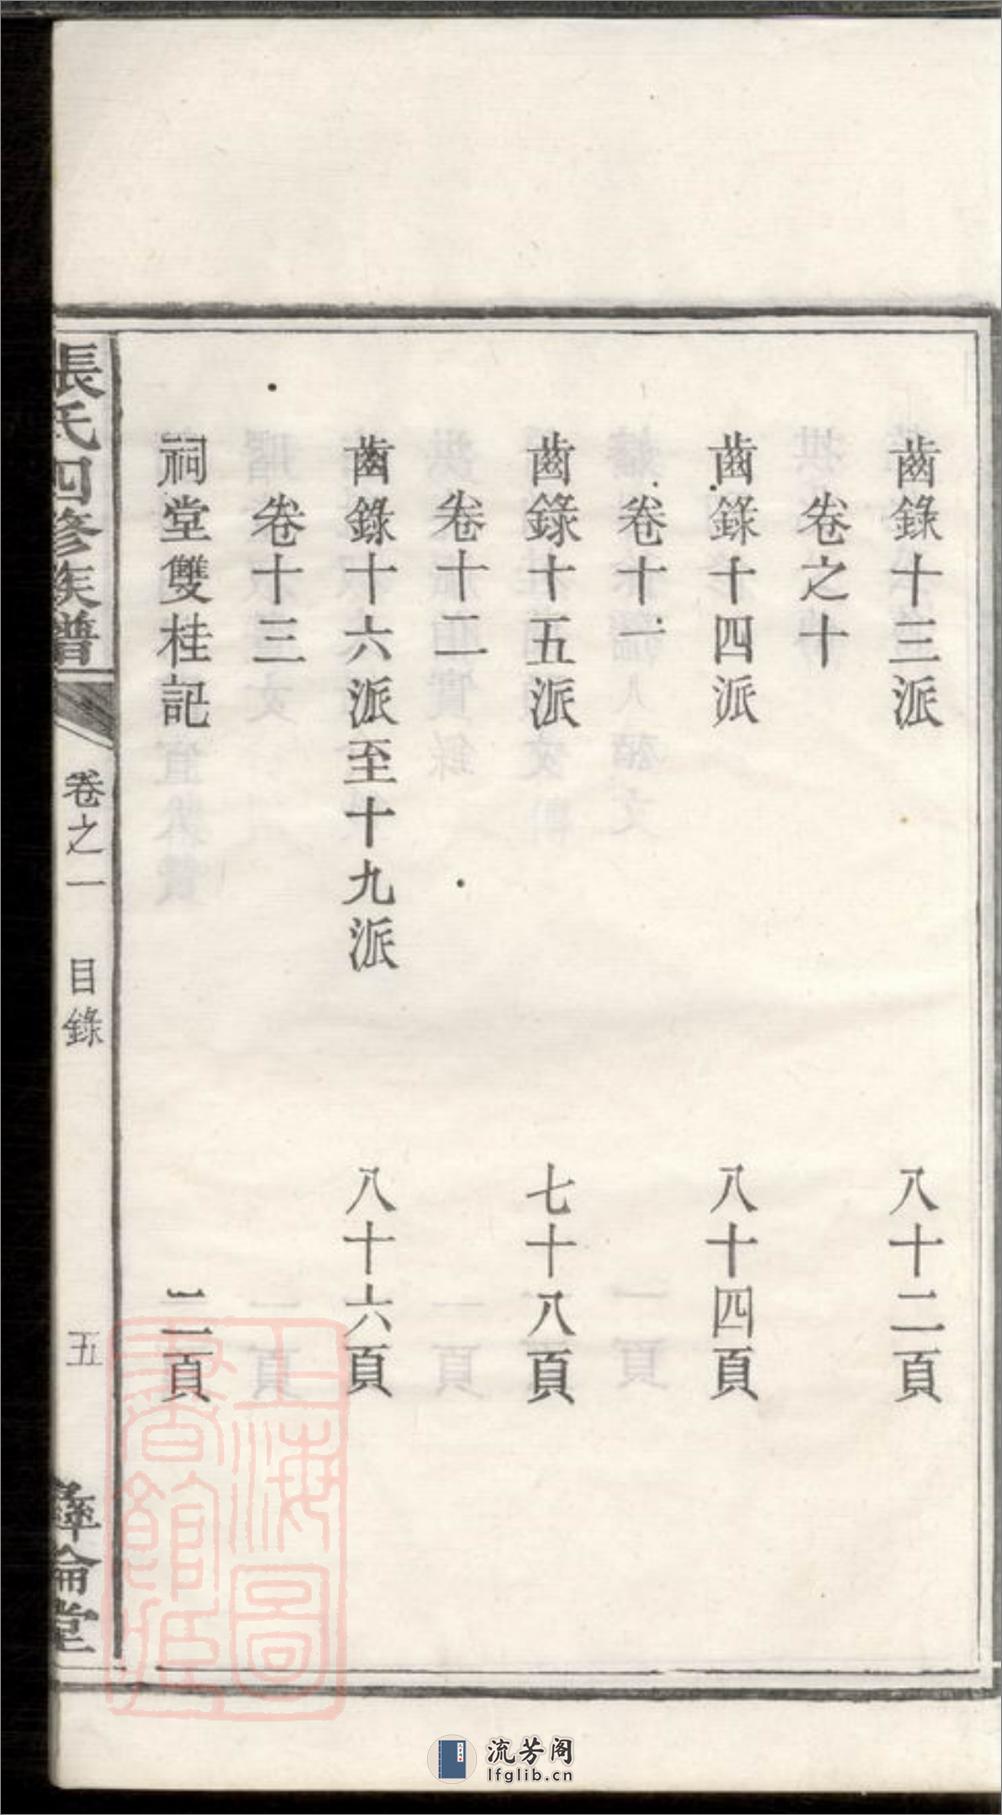 齒錄十三派 八十二頁
卷之十
齒錄十四派 八十四頁
卷十一
齒錄十五派 七十八頁
卷十二
齒錄十六派至十九派 八十六頁
卷十三
祠堂雙桂記 二頁
張氏四修族譜 卷之一 目錄 五 彝倫堂
上海圖書館藏
流芳阁
lfglib.cn